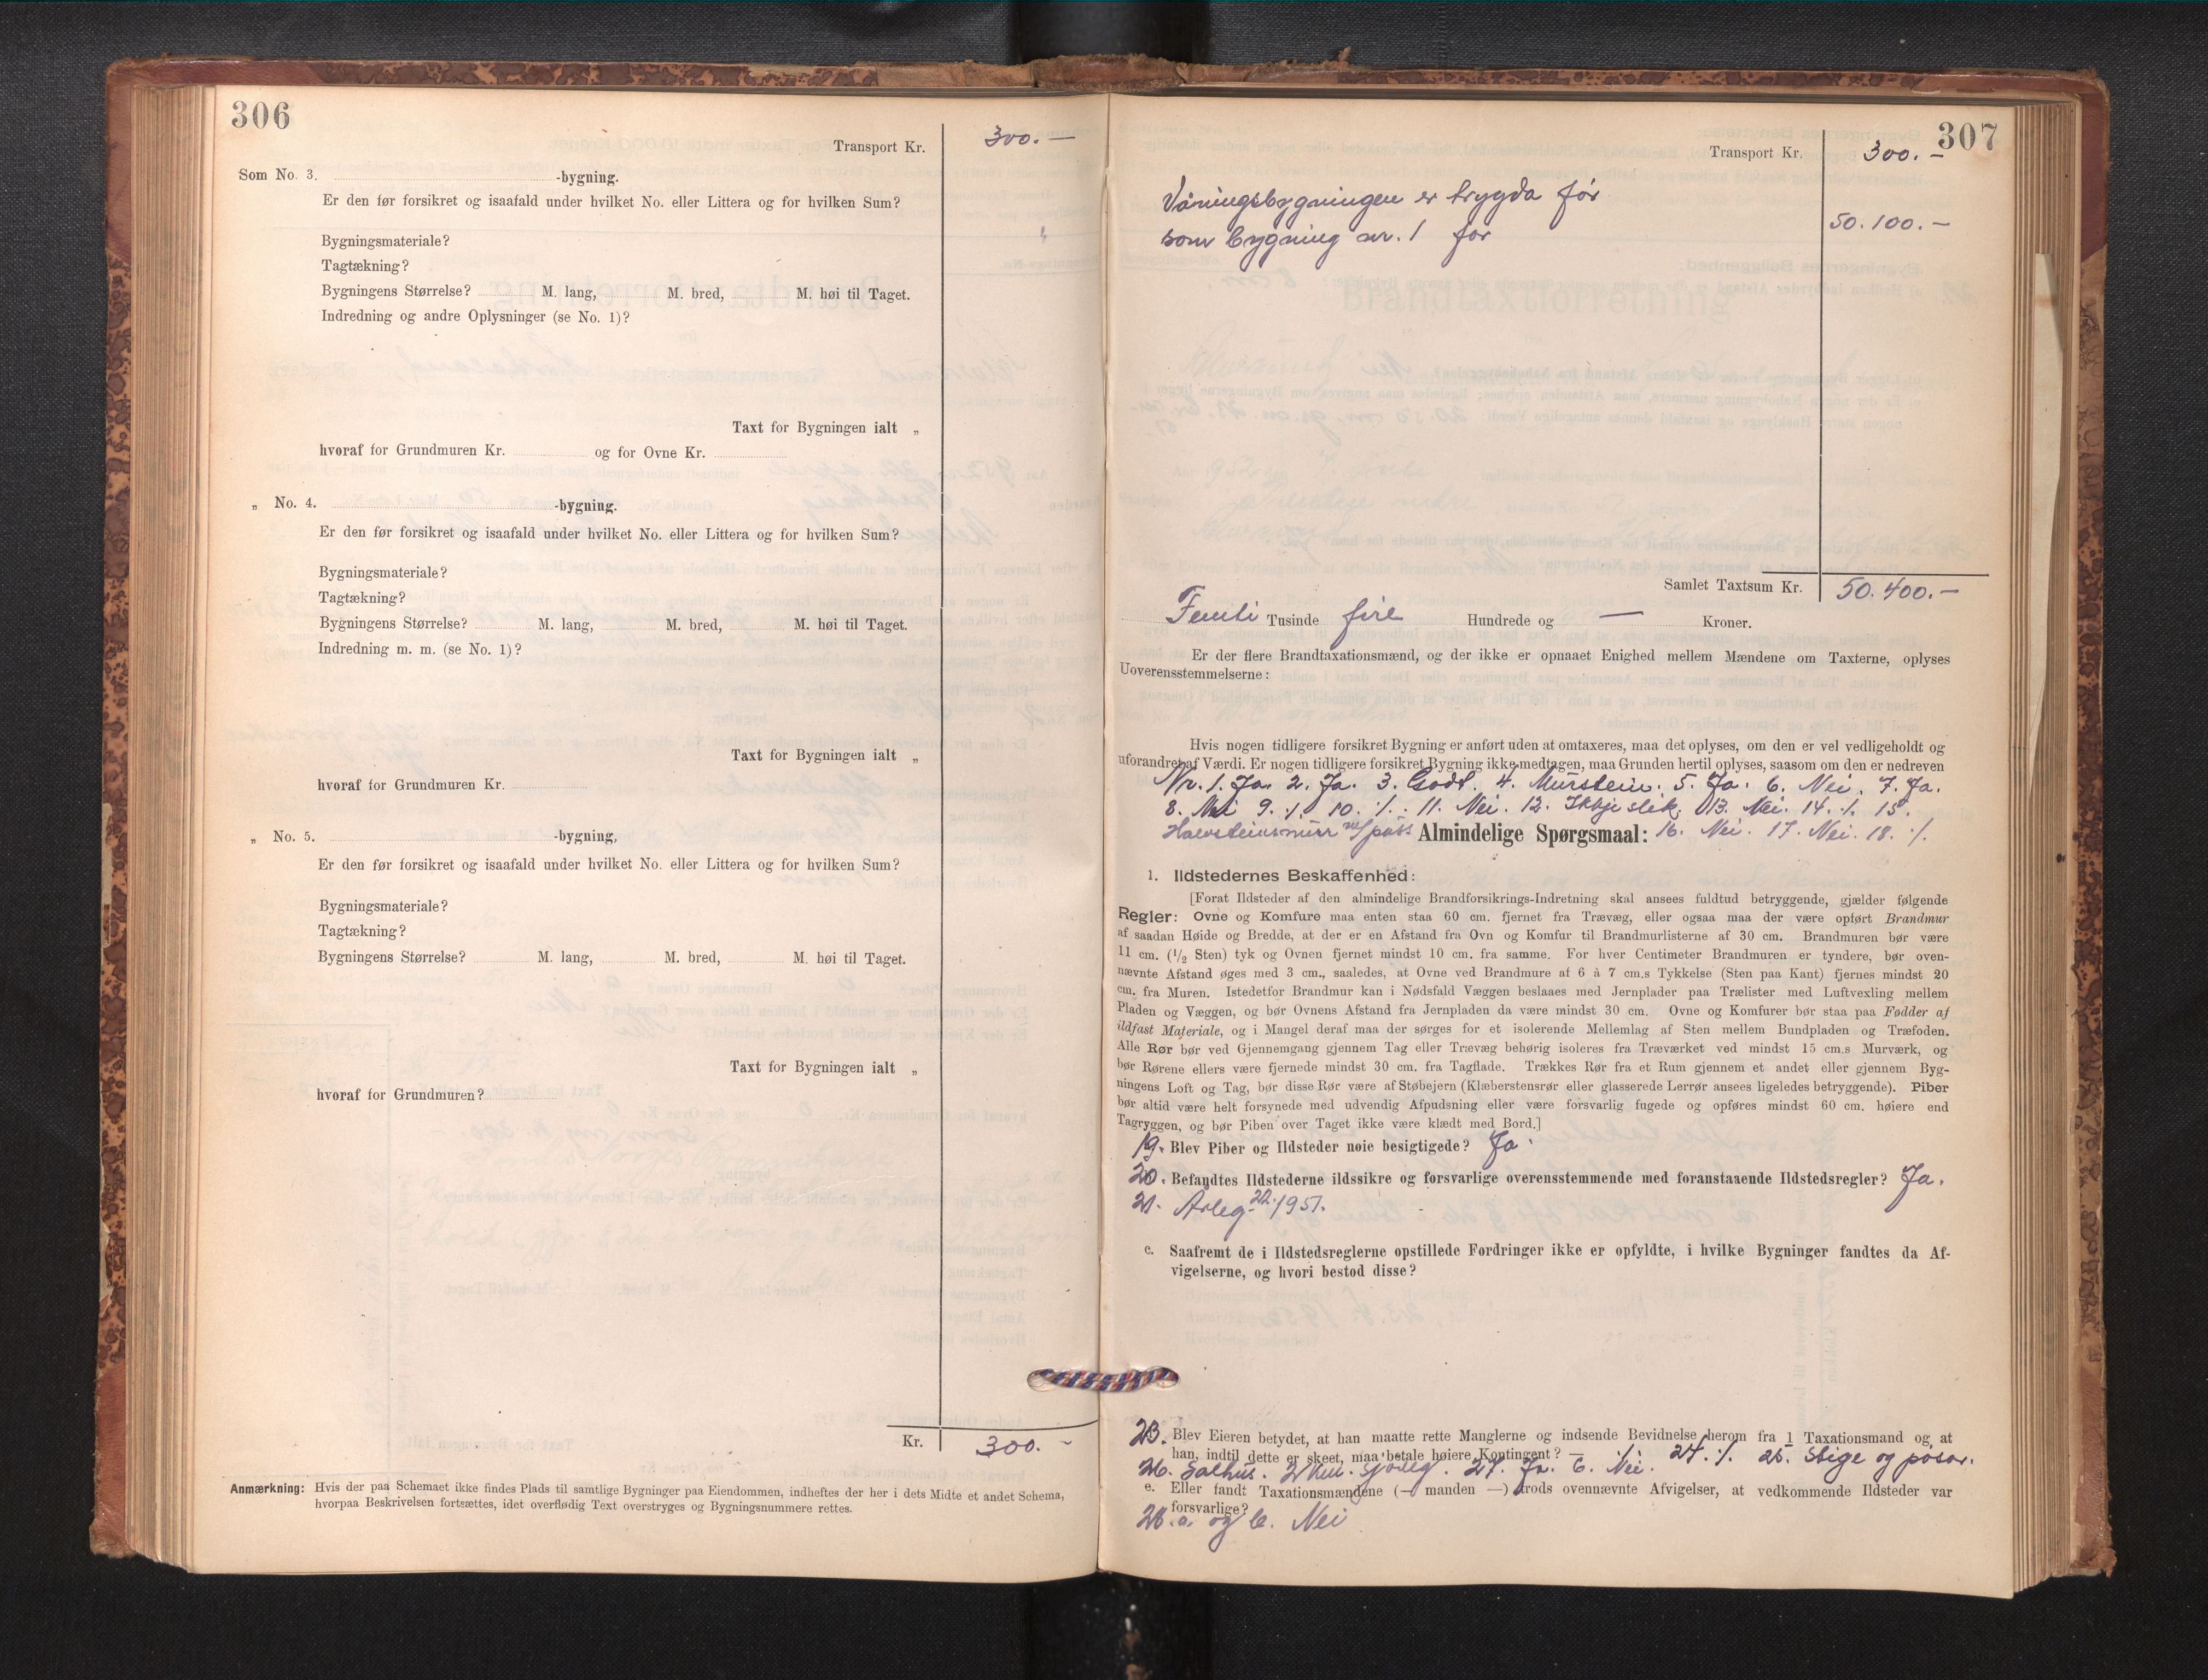 306
Transport Kr. 300.—
Som No. 3. -bygning.
Er den før forsikret og isaafald under hvilket No. eller Littera og for hvilken Sum?
Bygningsmateriale?
Tagtækning?
Bygningens Størrelse? M. lang, M. bred, M. høi til Taget.
Indredning og andre Oplysninger (se No. 1)?
Taxt for Bygningen ialt „
hvoraf for Grundmuren Kr. og for Ovne Kr.
„ No. 4. -bygning.
Er den før forsikret og isaafald under hvilket No. eller Littera og for hvilken Sum?
Bygningsmateriale?
Tagtækning?
Bygningens Størrelse? M. lang, M. bred, M. høi til Taget.
Indredning m. m. (se No. 1)?
Taxt for Bygningen ialt „
hvoraf for Grundmuren Kr.
„ No. 5. -bygning,
Er den før forsikret og isaafald under hvilket No. eller Littera og for hvilken Sum?
Bygningsmateriale?
Tagtækning?
Bygningens Størrelse? M. lang, M. bred, M. høi til Taget.
Taxt for Bygningen ialt „
hvoraf for Grundmuren?
Kr. 300.-
Anmærkning: Hvis der paa Schemaet ikke findes Plads til samtlige Bygninger paa Eiendommen, indheftes der her i dets Midte et andet Schema,
hvorpaa Beskrivelsen fortsættes, idet overflødig Text overstryges og Bygningsnummere rettes.
307
Transport Kr. 300.-
Våningsbygningen er trygda før
som bygning nr. 1 for 50.100.-
Samlet Taxtsum Kr. 50.400.-
Femti Tusinde fire Hundrede og — Kroner.
Er der flere Brandtaxationsmænd, og der ikke er opnaaet Enighed mellem Mændene om Taxterne, oplyses
Uoverensstemmelserne:
Hvis nogen tidligere forsikret Bygning er anført uden at omtaxeres, maa det oplyses, om den er vel vedligeholdt og
uforandret af Værdi. Er nogen tidligere forsikret Bygning ikke medtagen, maa Grunden hertil oplyses, saasom om den er nedreven
Nr. 1. Ja. 2. Ja. 3. Godt. 4. Murstein. 5. Ja. 6. Nei. 7. Ja.
8. Nei 9. ./. 10. ./. 11. Nei. 12. Ikkje slik. 13. Nei. 14. ./. 15.
m/puss Almindelige Spørgsmaal: 16. Nei. 17. Nei. 18. ./.
1. Ildstedernes Beskaffenhed:
[Forat Ildsteder af den almindelige Brandforsikrings-Indretning skal ansees fuldtud betryggende, gjælder følgende
Regler: Ovne og Komfure maa enten staa 60 cm. fjernet fra Trævæg, eller ogsaa maa der være opført Brandmur
af saadan Høide og Bredde, at der er en Afstand fra Ovn og Komfur til Brandmurlisterne af 30 cm. Brandmuren bør være
11 cm. (1/2 Sten) tyk og Ovnen fjernet mindst 10 cm. fra samme. For hver Centimeter Brandmuren er tyndere, bør oven-
nævnte Afstand øges med 3 cm., saaledes, at Ovne ved Brandmure af 6 à 7 cm.s Tykkelse (Sten paa Kant) fjernes mindst 20
cm. fra Muren. Istedetfor Brandmur kan i Nødsfald Væggen beslaaes med Jernplader paa Trælister med Luftvexling mellem
Pladen og Væggen, og bør Ovnens Afstand fra Jernpladen da være mindst 30 cm. Ovne og Komfurer bør staa paa Fødder af
ildfast Materiale, og i Mangel deraf maa der sørges for et isolerende Mellemlag af Sten mellem Bundpladen og Træfoden.
Alle Rør bør ved Gjennemgang gjennem Tag eller Trævæg behørig isoleres fra Træværket ved mindst 15 cm.s Murværk, og
bør Rørene ellers være fjernede mindst 30 cm. fra Tagflade. Trækkes Rør fra et Rum gjennem et andet eller gjennem Byg-
ningens Loft og Tag, bør disse Rør være af Støbejern (Klæberstensrør eller glasserede Lerrør ansees ligeledes betryggende). Piber
bør altid være helt forsynede med udvendig Afpudsning eller være forsvarlig fugede og opføres mindst 60 cm. høiere end
Tagryggen, og bør Piben over Taget ikke være klædt med Bord.]
19. Blev Piber og Ildsteder nøie besigtigede? Ja.
20. Befandtes Ildstederne ildssikre og forsvarlige overensstemmende med foranstaaende Ildstedsregler? Ja.
21. Årleg. 22. 1951.
c. Saafremt de i Ildstedsreglerne opstillede Fordringer ikke er opfyldte, i hvilke Bygninger fandtes da Af-
vigelserne, og hvori bestod disse?
23. Blev Eieren betydet, at han maatte rette Manglerne og indsende Bevidnelse herom fra 1 Taxationsmand og at
han, indtil dette er skeet, maa betale høiere Kontingent? — ./. 24. ./. 25. Stige og pøsar.
26. Salhus. 27. Ja. b. Nei.
e. Eller fandt Taxationsmændene (— manden —) trods ovennævnte Afvigelser, at vedkommende Ildsteder var
forsvarlige?
28. a. og b. Nei